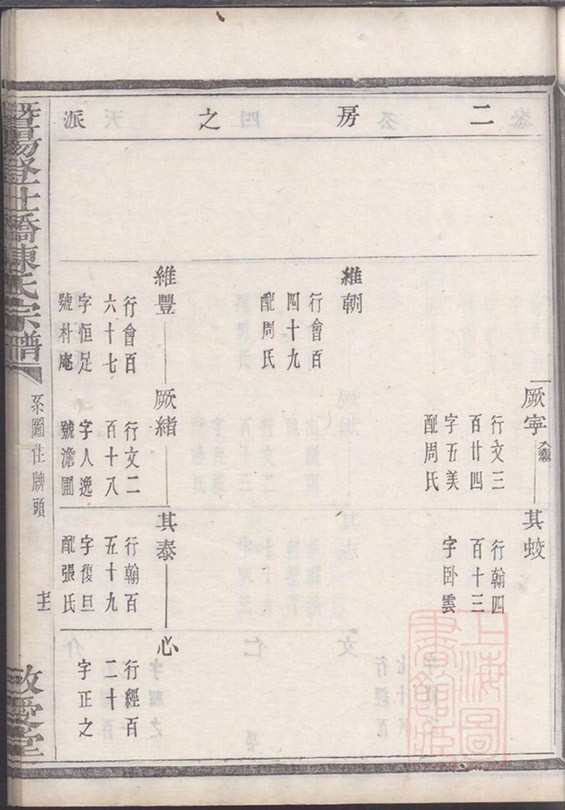 二房之派
厥寧
行文三
百廿四
字五美
配周氏
其蛟
行翰四
百十三
字卧雲
維朝
行會百
四十九
配周氏
維豐
行會百
六十七
字恒足
號朴庵
厥緒
行文二
百十八
字人逸
號澹圃
其泰
行翰百
五十九
字復旦
配張氏
心
行經百
二十十
字正之
暨陽登仕橋陳氏宗譜
系圖仕牌頭
敬愛堂
上海圖書館藏